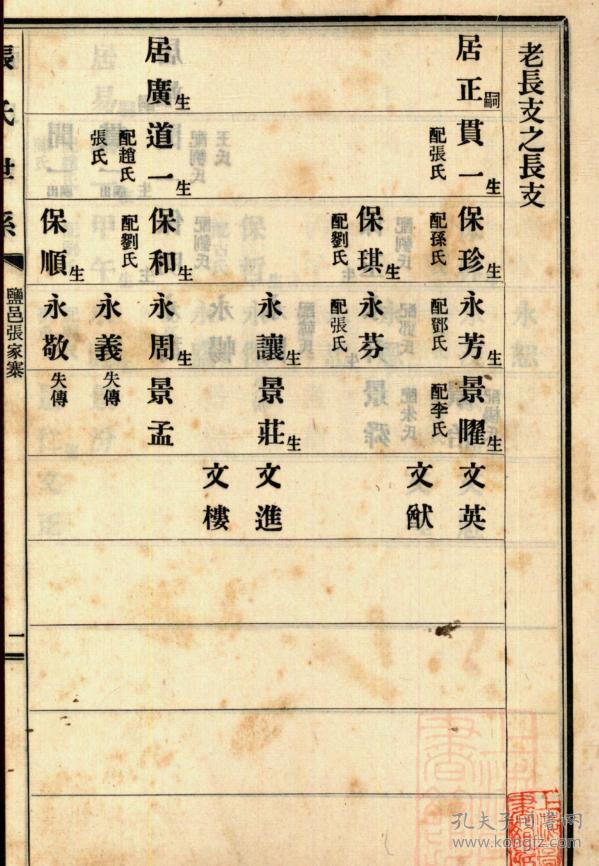 老長支之長支
居正嗣
貫一生
配張氏
保珍生
配孫氏
永芳生
配鄧氏
景曜生
配李氏
文英
文猷
保琪生
配劉氏
永芬
配張氏
永讓生
景莊生
文進
文樓
居廣生
道一生
配趙氏
張氏
保和生
配劉氏
永周生
景孟
永義
失傳
保順生
永敬
失傳
張氏世系
鹽邑張家寨
一
孔夫子旧书网
www.kongfz.com